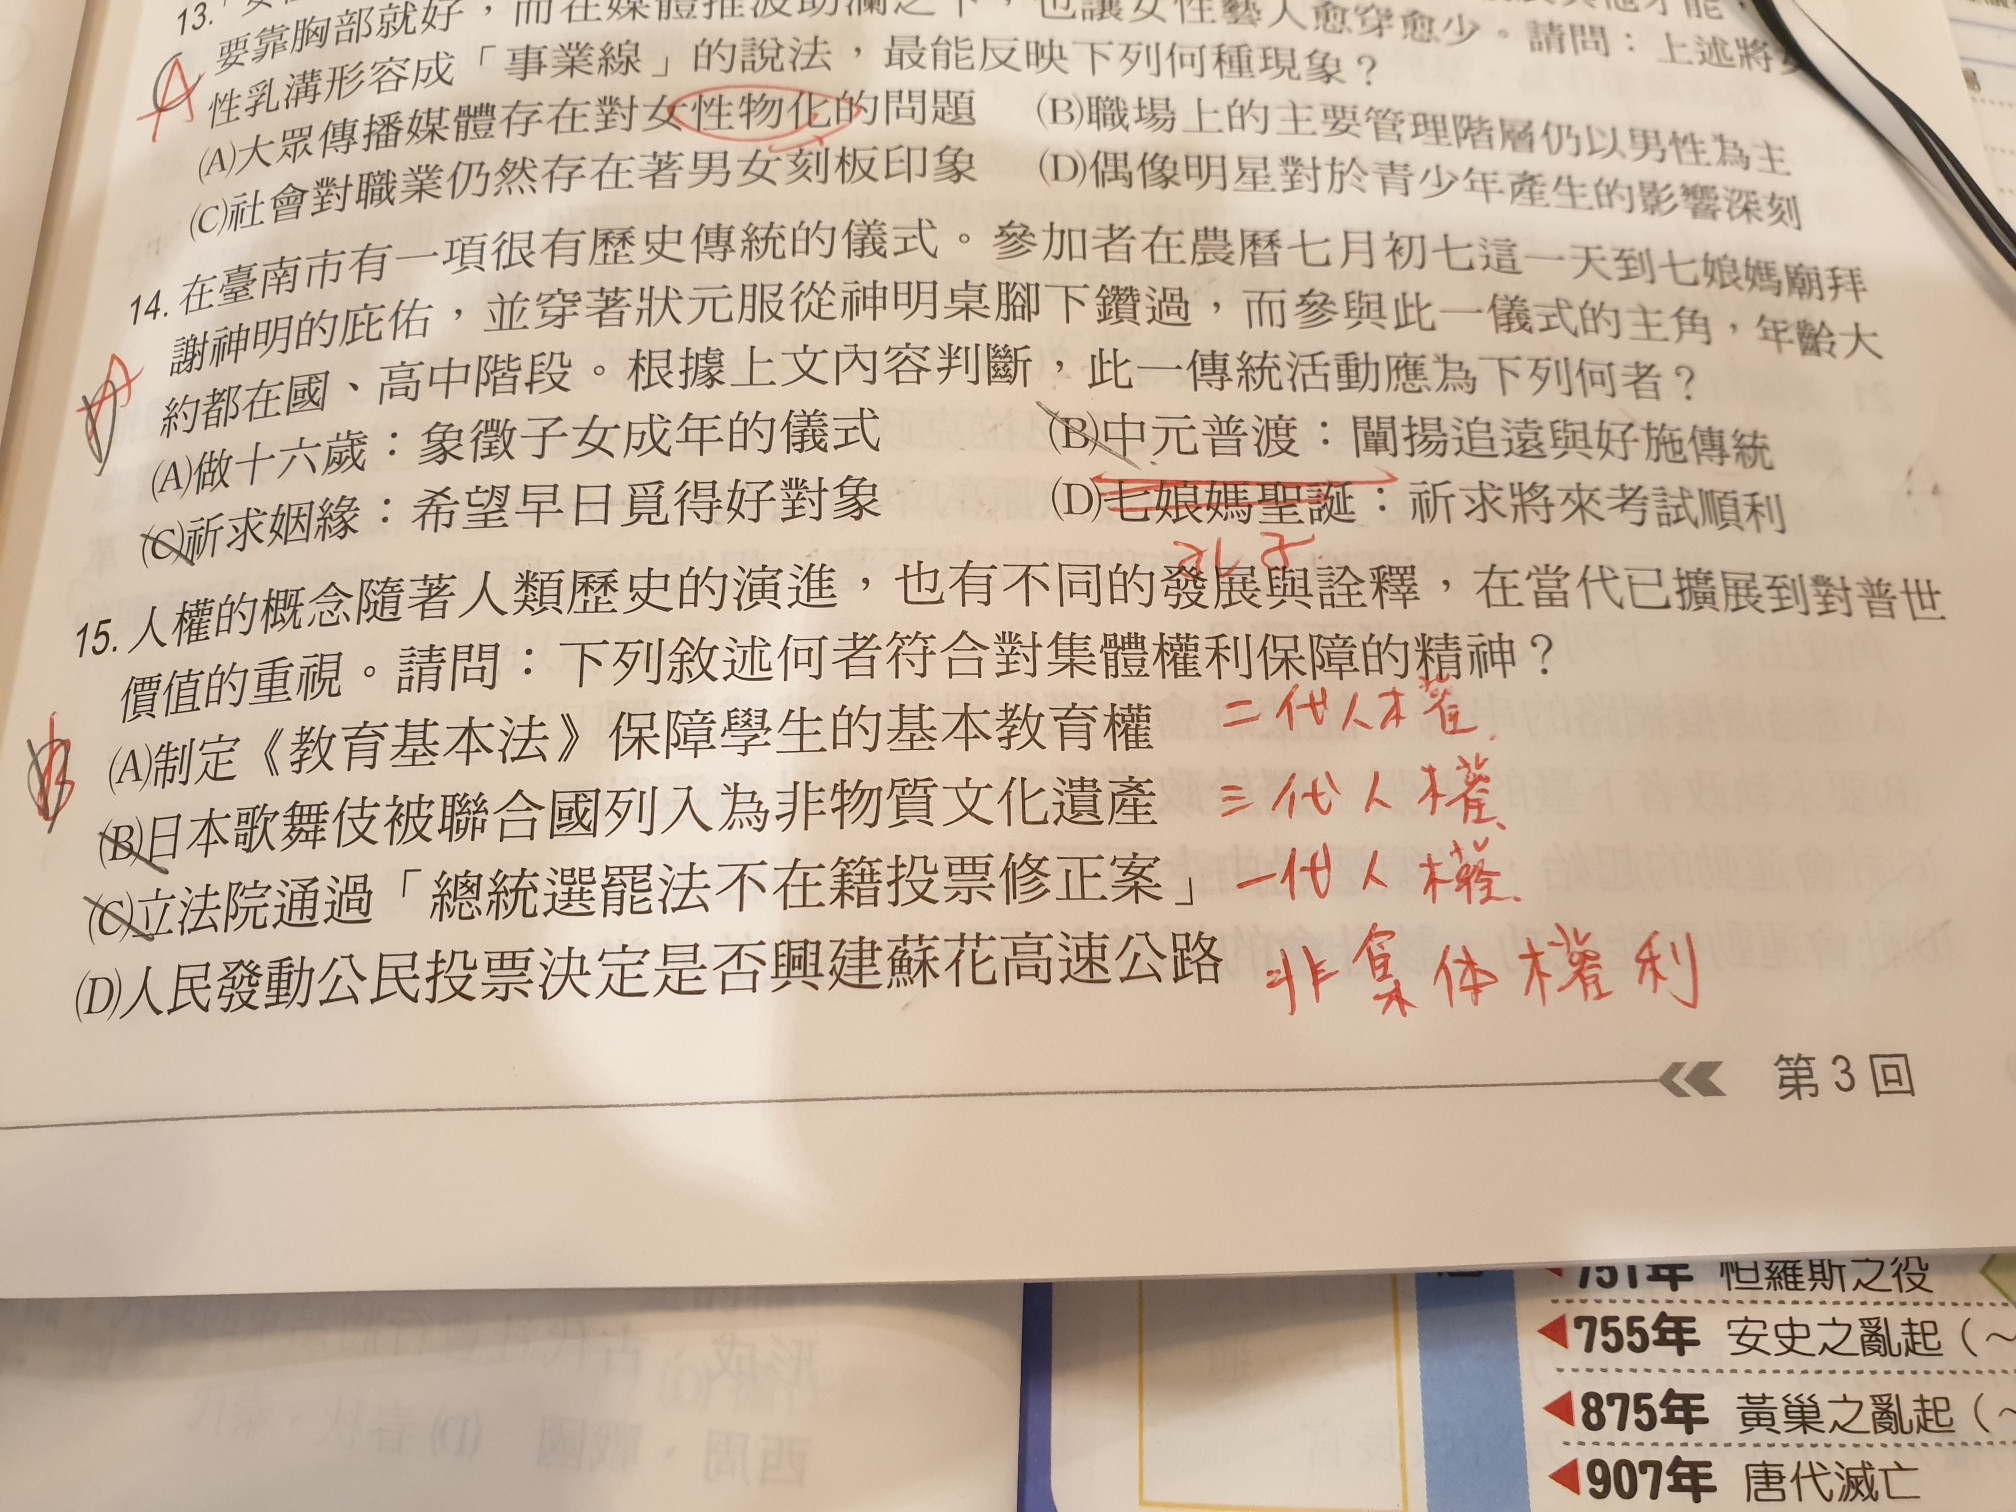 13.
要靠胸部就好，而在媒體推波助瀾之下，也讓女性藝人愈穿愈少。請問：上述將女
性乳溝形容成「事業線」的說法，最能反映下列何種現象？
A
(A)大眾傳播媒體存在對女性物化的問題 (B)職場上的主要管理階層仍以男性為主
(C)社會對職業仍然存在著男女刻板印象 (D)偶像明星對於青少年產生的影響深刻
14. 在臺南市有一項很有歷史傳統的儀式。參加者在農曆七月初七這一天到七娘媽廟拜
謝神明的庇佑，並穿著狀元服從神明桌腳下鑽過，而參與此一儀式的主角，年齡大
A
約都在國、高中階段。根據上文內容判斷，此一傳統活動應為下列何者？
(A)做十六歲：象徵子女成年的儀式 (B)中元普渡：闡揚追遠與好施傳統
(C)祈求姻緣：希望早日覓得好對象 (D)七娘媽聖誕：祈求將來考試順利
15. 人權的概念隨著人類歷史的演進，也有不同的發展與詮釋，在當代已擴展到對普世
價值的重視。請問：下列敘述何者符合對集體權利保障的精神？
B
(A)制定《教育基本法》保障學生的基本教育權 二代人權
(B)日本歌舞伎被聯合國列入為非物質文化遺產 三代人權
(C)立法院通過「總統選罷法不在籍投票修正案」 一代人權
(D)人民發動公民投票決定是否興建蘇花高速公路 非集体權利
第3回
751年 怛羅斯之役
755年 安史之亂起（～
875年 黃巢之亂起（～
907年 唐代滅亡